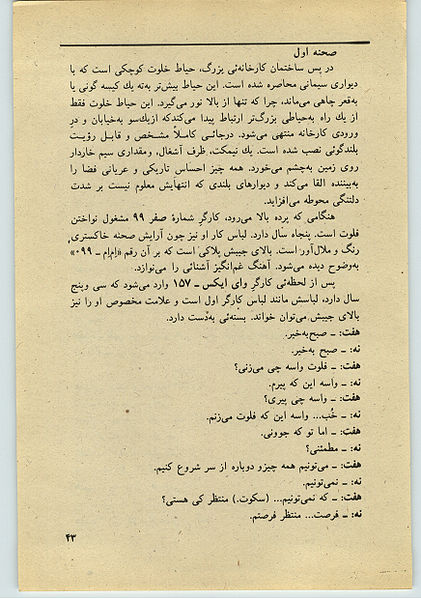 صحنه اول
در پس ساختمان کارخانه‌ئی بزرگ، حیاط خلوت کوچکی است که با
دیواری سیمانی محاصره شده است. این حیاط بیش‌تر به‌ته یك کیسه گونی یا
به‌قعر چاهی می‌ماند، چرا که تنها از بالا نور می‌گیرد. این حیاط خلوت فقط
از یك راه به‌حیاطی بزرگ‌تر ارتباط پیدا می‌کند‌که از‌یك‌سو به‌خیابان و در
ورودی کارخانه منتهی می‌شود. در‌جائـی کاملاً مشـخص و قابـل رؤیـت
بلندگوئی نصب شده است. یك نیمکت، ظرف آشغال، و‌مقداری سیم خاردار
روی زمین به‌چشم می‌خورد. همه چیز احساس تاریکی و عریانی فضا را
به‌بیننده القا می‌کند و دیوارهای بلندی که انتهایش معلوم نیست بر شدت
دلتنگی محوطه می‌افزاید.
هنگامی که پرده بالا می‌رود، کارگر شمارهٔ صفر ۹۹ مشغول نواختن
فلوت است. پنجاه سال دارد. لباس کار او نیز چون آرایش صحنه خاکستری
رنگ و ملال‌آور است. بالای جیبش پلاکی است که بر آن رقم «اِم‌اِم ـ ۰۹۹»
به‌وضوح دیده می‌شود. آهنگ غم‌انگیز آشنائی را می‌نوازد.
پس از لحظه‌ئی کارگر وای ایکس ـ ۱۵۷ وارد می‌شود که سی وپنج
سال دارد، لباسش مانند لباس کارگر اول است و علامت مخصوص او را نیز
بالای جیبش می‌توان خواند. بسته‌ئی به‌دست دارد.
هفت: ـ صبح‌به‌خیر.
نه: ـ صبح به‌خیر.
هفت: ـ فلوت واسه چی می‌زنی؟
نه: ـ واسه این که پیرم.
هفت: ـ واسه چی پیری؟
نه: ـ خُب... واسه این که فلوت می‌زنم.
هفت: ـ اما تو که جوونی.
نه: ـ مطمئنی؟
هفت: ـ می‌تونیم همه چیزو دوباره از سر شروع کنیم.
نه: ـ نمی‌تونیم.
هفت: ـ که نمی‌تونیم... (سکوت.) منتظر کی هستی؟
نه: ـ فرصت... منتظر فرصتم.
۴۳